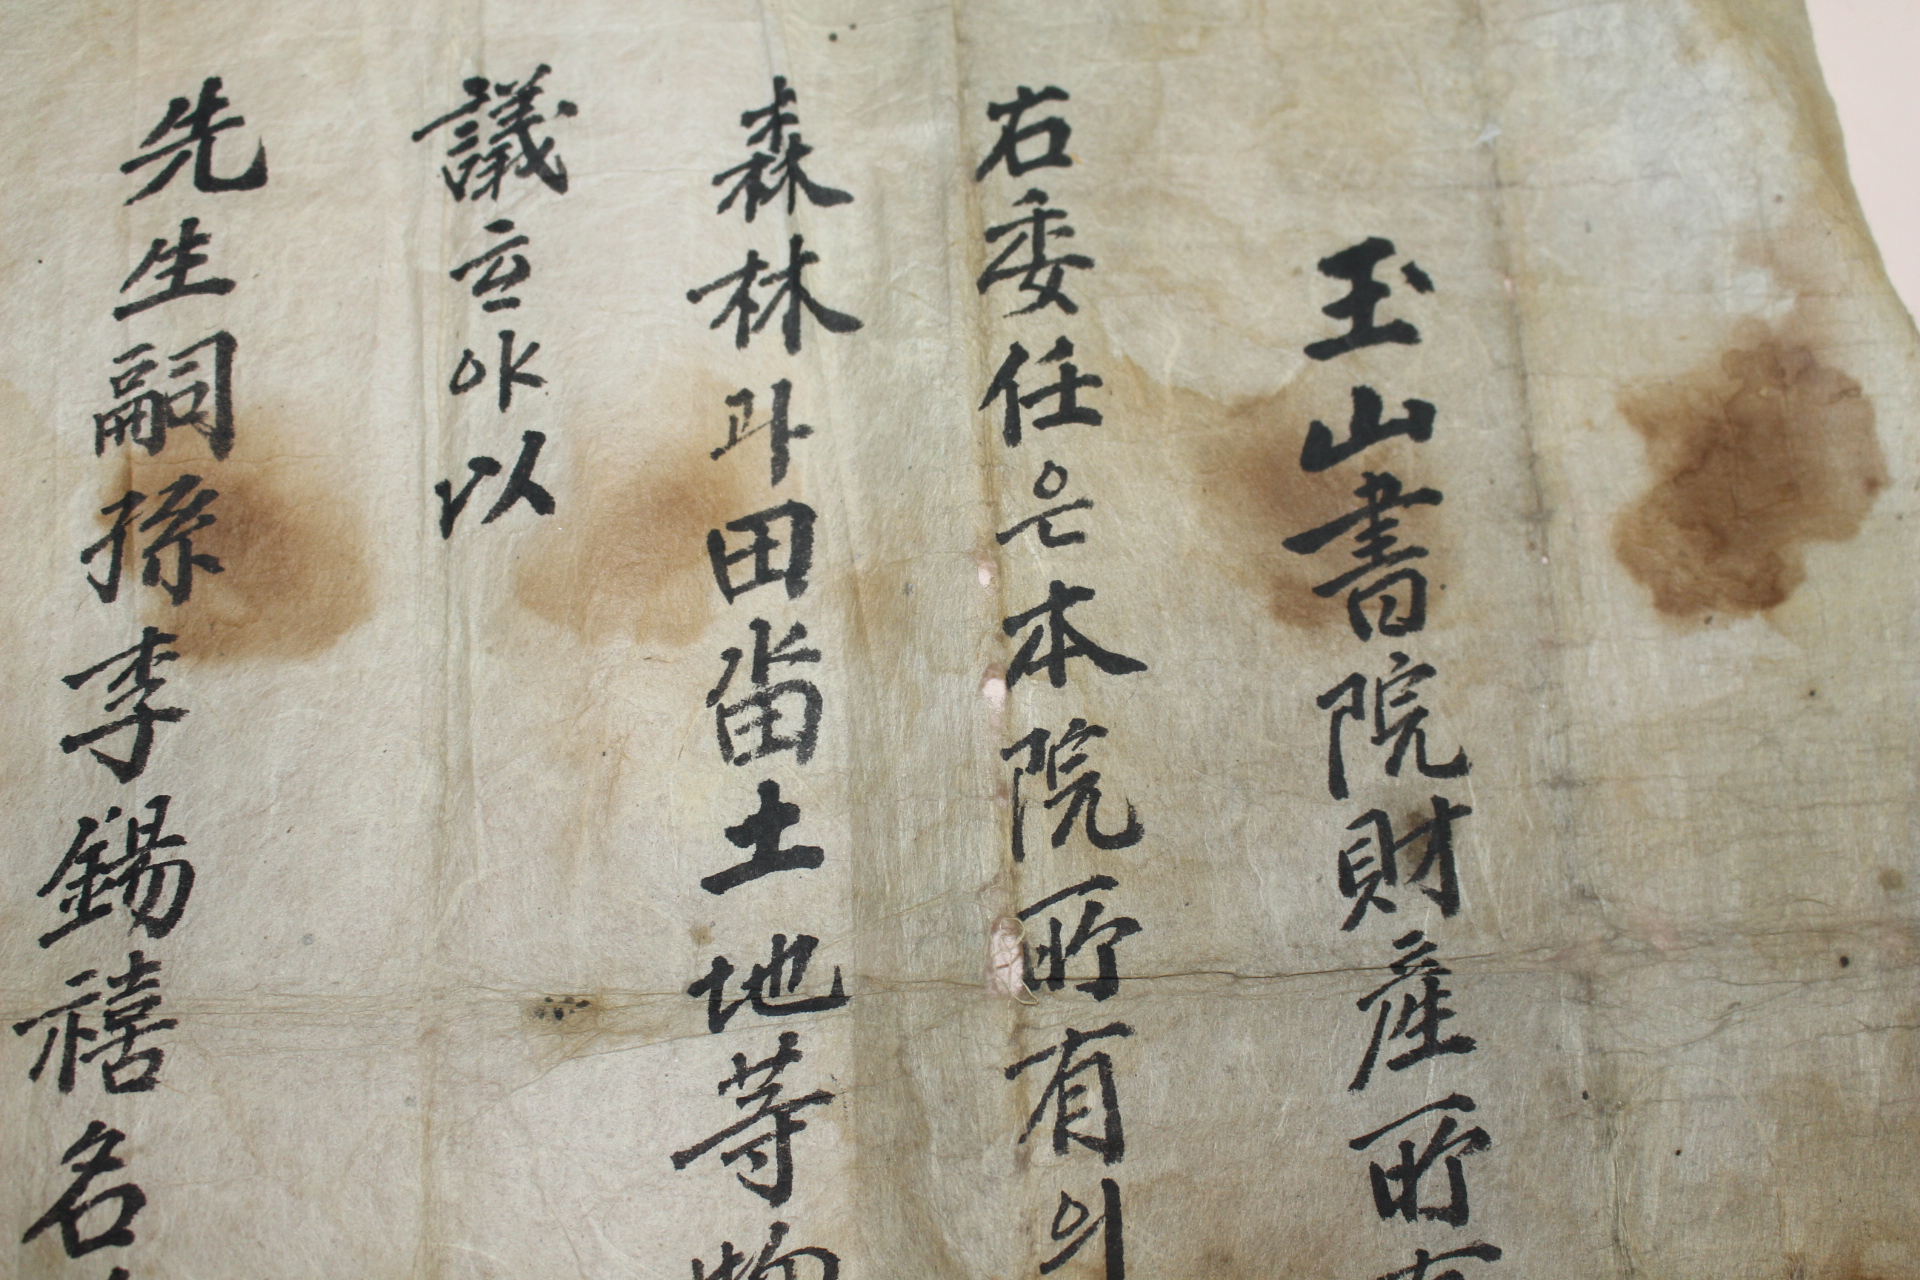 玉山書院財産所有
右委任은本院所有의
森林과田畓土地等物
議호야以
先生嗣孫李錫禧名